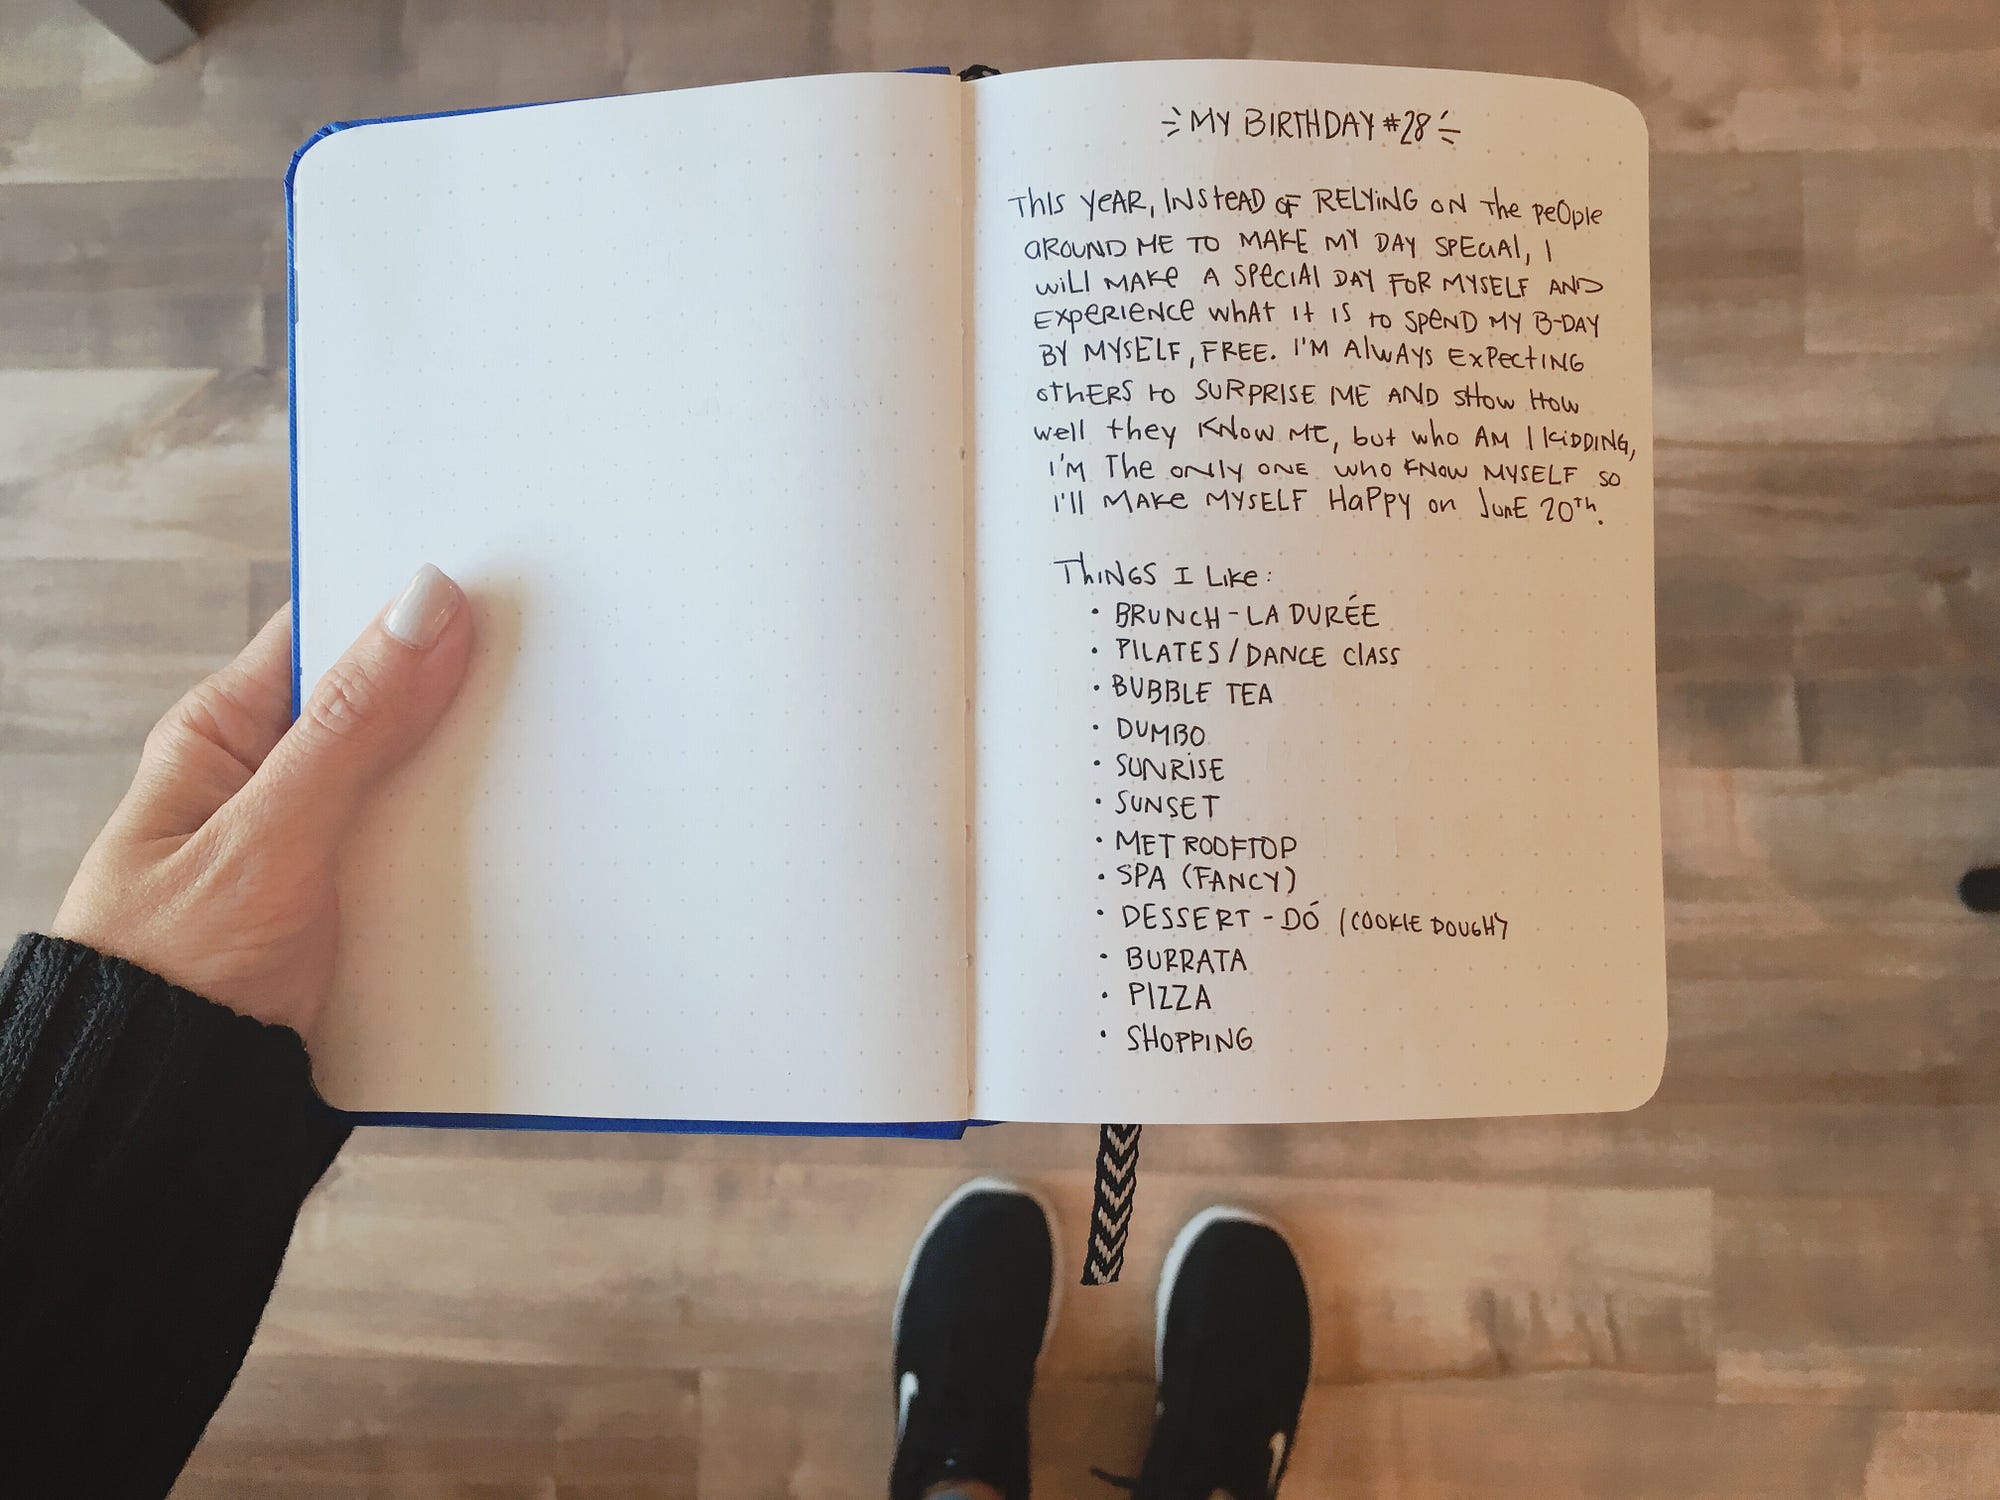 MY BIRTHDAY #28
This year, instead of relying on the people
around me to make my day special, I
will make a special day for myself and
experience what it is to spend my b-day
by myself, free. I'm always expecting
others to surprise me and show how
well they know me, but who am I kidding,
I'm the only one who know myself so
I'll make myself happy on June 20th.
Things I like:
• BRUNCH - LA DURÉE
• PILATES / DANCE CLASS
• BUBBLE TEA
• DUMBO
• SUNRISE
• SUNSET
• MET ROOFTOP
• SPA (FANCY)
• DESSERT - DÓ (COOKIE DOUGH)
• BURRATA
• PIZZA
• SHOPPING